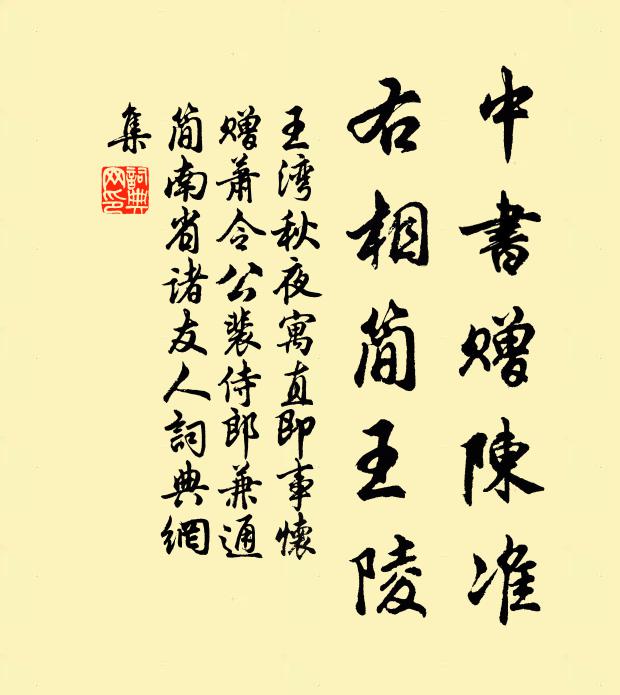 中書赠陳准
右相简王陵
王湾秋夜寓直即事懷
赠萧令公裴侍郎兼通
简南省诸友人詞典網
集
詞典網印